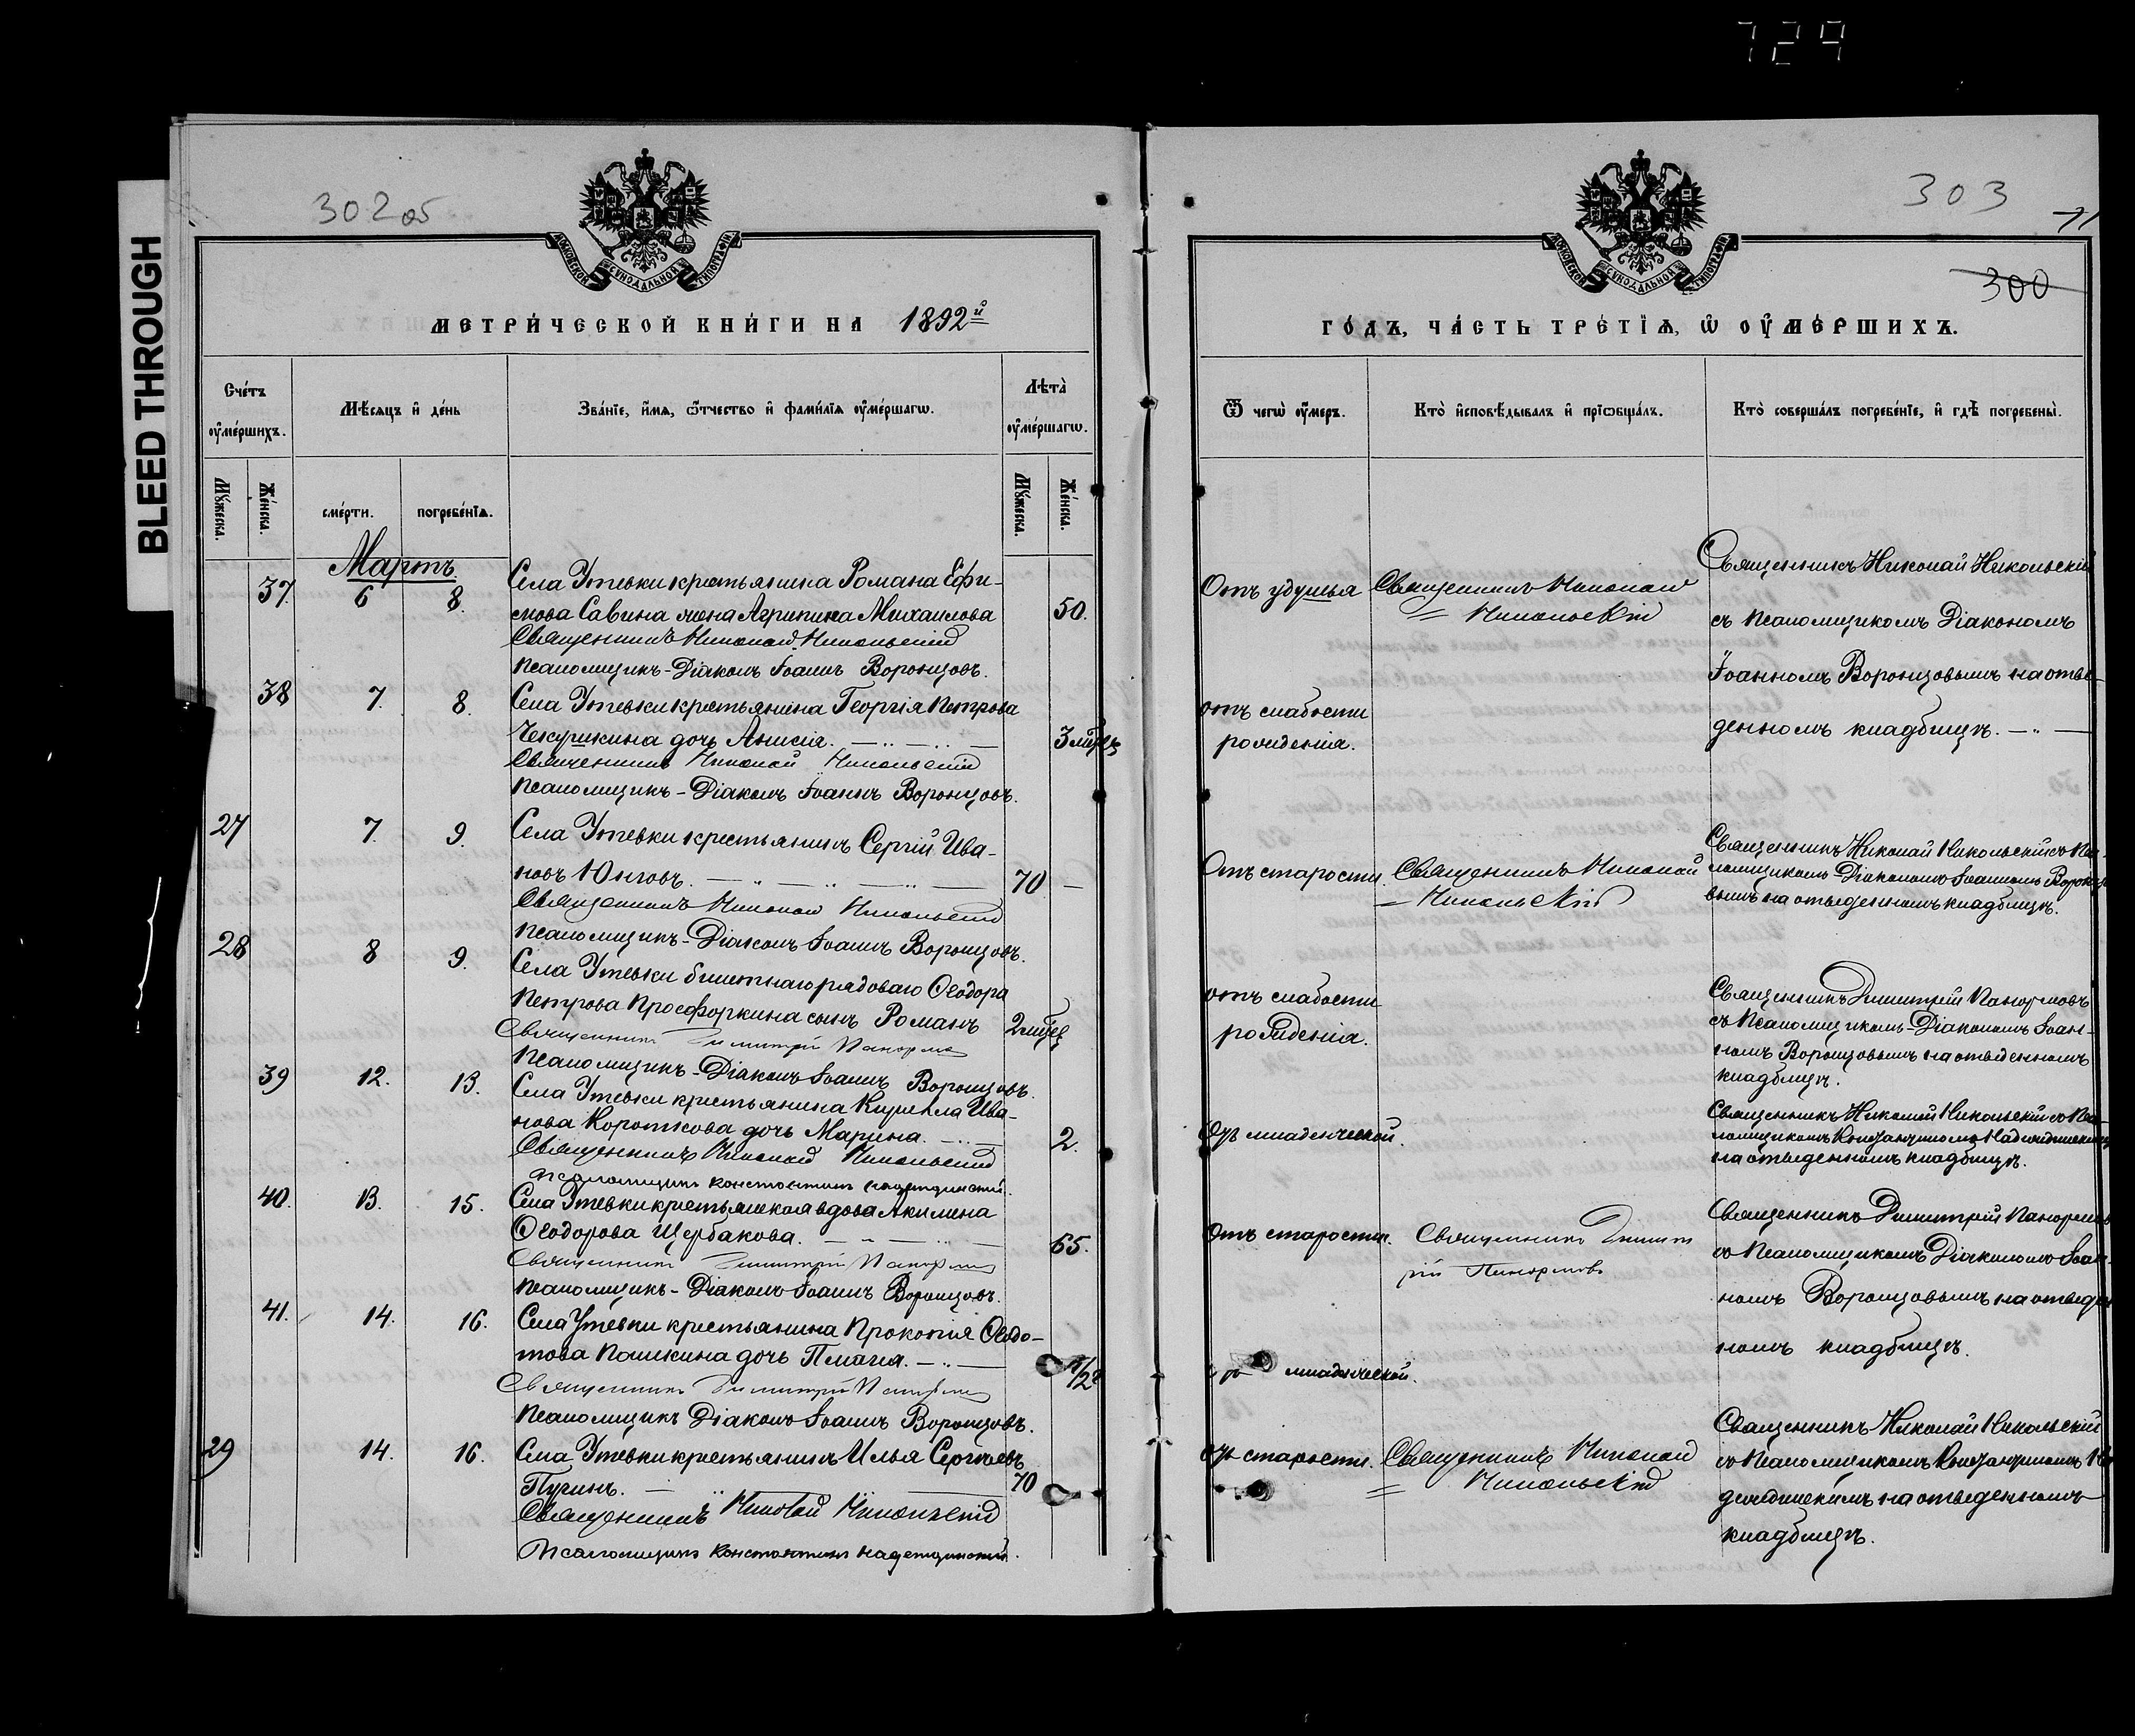 729
BLEED THROUGH
302 об
МОСКОВСКОЙ СѴНОДАЛЬНОЙ ТИПОГРАФІИ
МЕТРИ́ЧЕСКОЙ КНИ́ГИ НА 1892й
Сче́тъ оу҆ме́ршихъ.
Мѣ́сяцъ и҆ де́нь
Зва́нїе, и҆́мя, ѻ҆́тчество и҆ фами́лїя оу҆ме́ршагѡ.
Лѣта̀ оу҆ме́ршагѡ.
Мꙋ́жеска.
Же́нска.
сме́рти.
погребе́нїѧ.
Мꙋ́жеска.
Же́нска.
Мартъ
37. 6 8. Села Утевки крестьянина Романа Ефи-
мова Савина жена Агрипина Михаилова 50.
Священникъ Николай Никольскій
Псаломщикъ-Діаконъ Іоаннъ Воронцовъ.
38 7. 8. Села Утевки крестьянина Георгія Петрова
Чекушкина дочь Анисія. 3 мѣсц
Священникъ Николай Никольскій
Псаломщикъ-Діаконъ Іоаннъ Воронцовъ.
27 7. 9. Села Утевки крестьянинъ Сергій Ива-
новъ Юнговъ. 70
Священникъ Николай Никольскій
Псаломщикъ-Діаконъ Іоаннъ Воронцовъ.
28 8 9. Села Утевки билетнаго рядоваго Ѳеодора
Петрова Просфоркина сынъ Романъ 2 мѣсц
Священникъ Димитрій Панормовъ
Псаломщикъ-Діаконъ Іоаннъ Воронцовъ.
39 12. 13. Села Утевки крестьянина Кирилла Ива-
нова Короткова дочь Марина. 2.
Священникъ Николай Никольскій
Псаломщикъ Константинъ Надеждинский.
40. 13. 15. Села Утевки крестьянская вдова Акилина
Ѳеодорова Щербакова. 65.
Священникъ Димитрій Панормовъ
Псаломщикъ-Діаконъ Іоаннъ Воронцовъ.
41. 14. 16. Села Утевки крестьянина Прокопія Ѳедо-
това дочь 1/2
Священникъ Димитрій Панормовъ
Псаломщикъ Діаконъ Іоаннъ Воронцовъ.
29 14. 16. Села Утевки крестьянинъ Илья Сергѣевъ
Пугинъ. 70
Священникъ Николай Никольскій
Псаломщикъ Константинъ Надеждинский.
303
71
300
МОСКОВСКОЙ СѴНОДАЛЬНОЙ ТИПОГРАФІИ
ГО́ДЪ, ЧА́СТЬ ТРЕ́ТЇѦ, Ѡ҆ ОУ҆МЕ́РШИХЪ.
Ѿ чегѡ̀ оу҆́меръ.
Кто̀ и҆сповѣ́дывалъ и҆ прїѡбща́лъ.
Кто̀ соверша́лъ погребе́нїе, и҆ гдѣ̀ погребены̀.
Отъ удушья Священникъ Николай
Никольскій
Священникъ Николай Никольскій
съ Псаломщикомъ Діакономъ
Іоанномъ Воронцовымъ на отве-
денномъ кладбищѣ.
отъ слабости
рожденія.
Отъ старости. Священникъ Николай
Никольскій
Священникъ Николай Никольскій съ Пса-
ломщикомъ-Діакономъ Іоанномъ Воронцо
вымъ на отведенномъ кладбищѣ.
отъ слабости
рожденія.
Священникъ Димитрій Панормовъ
съ Псаломщикомъ-Діакономъ Іоан-
номъ Воронцовымъ на отведенномъ
кладбищѣ.
Отъ младенческой.
Священникъ Николай Никольскій со Пса-
ломщикомъ Константиномъ Надеждинскимъ
на отведенномъ кладбищѣ.
Отъ старости. Священникъ Димит
рій Панормовъ
Священникъ Димитрій Панормовъ
со Псаломщикомъ Діакономъ Іоан-
номъ Воронцовымъ на отведен
номъ кладбищѣ.
младенческой.
Отъ старости. Священникъ Николай
Никольскій
Священникъ Николай Никольскій
со Псаломщикомъ Константиномъ На
деждинскимъ на отведенномъ
кладбищѣ.